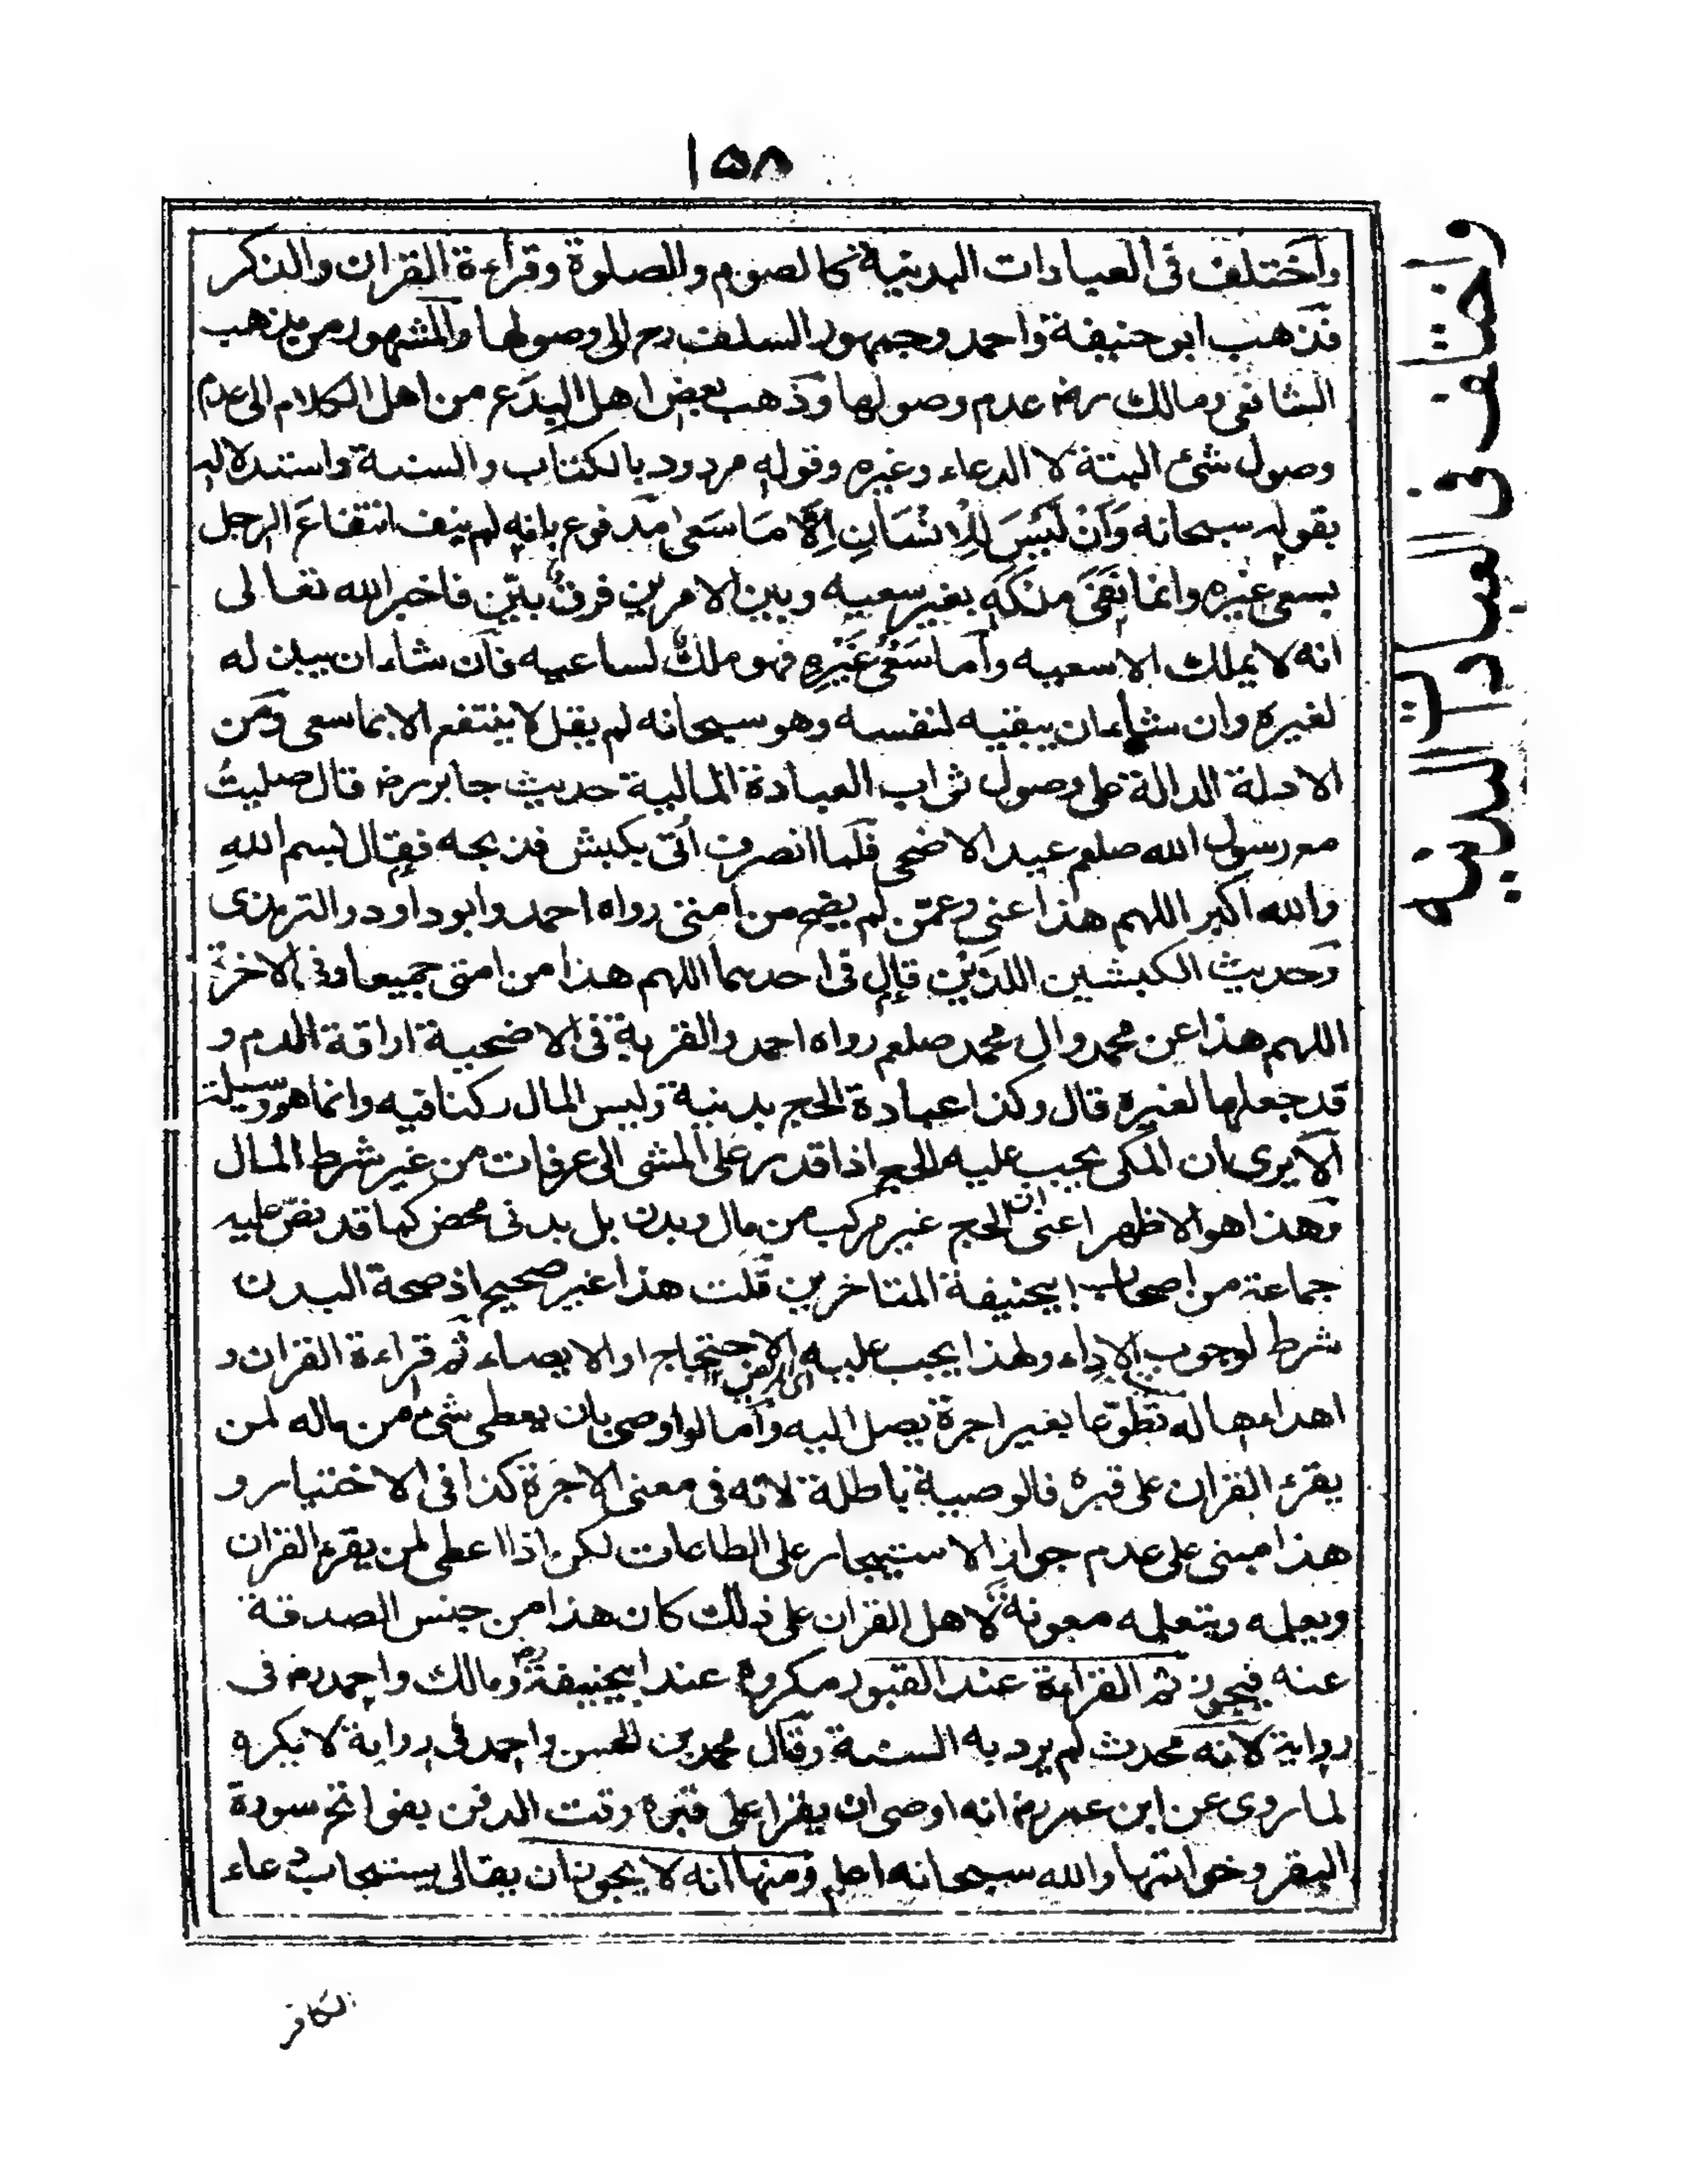 ١٥٨
واختلف فى العبادات البدنية كالصوم والصلوة وقراءة القران والذكر
فذهب ابو حنيفة واحمد وجمهور السلف رح الى وصولها والمشهور من مذهب
الشافعى ومالك رض عدم وصولها وذهب بعض اهل البدع من اهل الكلام الى عدم
وصول شئ البتة لا الدعاء وغيره وقوله مردود بالكتاب والسنة واستدلاله
بقوله سبحانه وَاَنْ لَيْسَ لِلْاِنْسَانِ اِلَّا مَا سَعى مدفوع بانه لم ينف انتفاعَ الرجل
بسعى غيره وانما نفى ملكه بغير سعيه وبين الامرين فرق بيّن فاخبر الله تعالى
انه لا يملك الا سعيه واما سَعْىُ غَيْرِهِ فهو ملكٌ لساعيه فان شاء ان يبذله
لغيره وان شاء ان يبقيه لنفسه وهو سبحانه لم يقل لا ينتفع الا بما سعى ومن
الادلة الدالة على وصول ثواب العبادة المالية حديث جابر رض قال صليتُ
مع رسول الله صلعم عيد الاضحى فلما انصرف اُتى بكبش فذبحه فقال بسم اللهِ
والله اكبر اللهم هذا عنى وعمّن لم يضح من امتى رواه احمد وابو داود والترمذى
وحديث الكبشين اللذَيْن قال فى احدهما اللهم هذا من امتى جميعا وفى الاخرة
اللهم هذا عن محمد وال محمد صلعم رواه احمد والقربة فى الاضحية اراقة الدم و
قد جعلها لغيره قال وكذا عبادة الحج بدنية وليس المال ركنا فيه وانما هو وسيلة
الا يرى ان المكى يجب عليه الحج اذا قدر على المشى الى عرفات من غير شرط المال
وهذا هو الاظهر اعنى ان الحج غير مركب من مال وبدن بل بدنى محض كما قد نصّ عليه
جماعة من اصحاب ابيحنيفة المتاخرين قلت هذا غير صحيح اذ صحة البدن
شرط لوجوب الاداء ولهذا يجب عليه الاحتجاج او الايصاء ثم قراءة القران و
اهداءها له تطوّعا بغير اجرة يصل اليه واما لو اوصى بان يعطى شئ من ماله لمن
يقرء القران على قبره فالوصية باطلة لانه فى معنى الاجرة كذا فى الاختيار و
هذا مبنى على عدم جواز الاستيجار على الطاعات لكن اذا اعطى لمن يقرء القران
ويعلمه ويتعلمه معونة لاهل القران على ذلك كان هذا من جنس الصدقة
عنه فيجوز ثم القراءة عند القبور مكروه عند ابيحنيفة رض ومالك واحمد رض فى
رواية لانه محدث لم يرد به السنة وقال محمد بن الحسن واحمد فى رواية لا يكره
لما روى عن ابن عمر رض انه اوصى ان يقرا على قبره وقت الدفن بفواتح سورة
البقر وخواتمها والله سبحانه اعلم ومنها انه لا يجوز ان يقال يستجاب دعاء
الكافر
واختلف فى العبادات البدنية